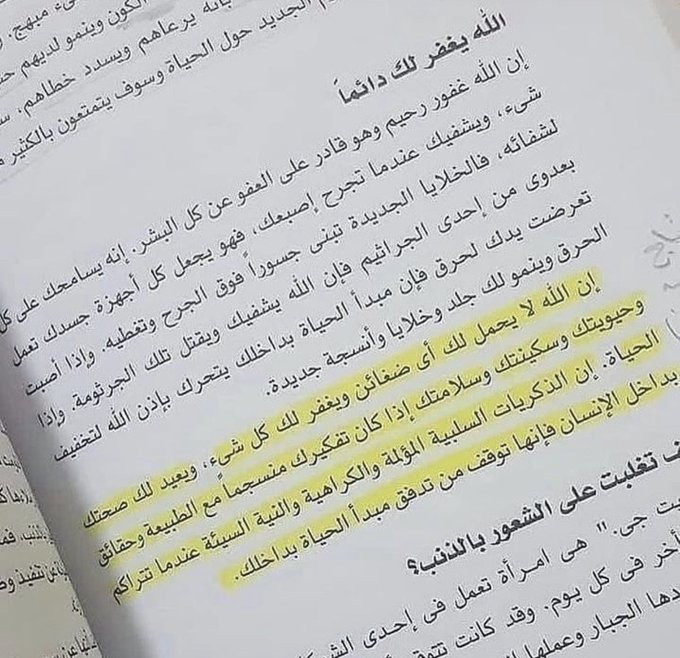 مبهج.
الكون وينمو لديهم
بأنه يرعاهم ويسدد خطاهم.
الجديد حول الحياة وسوف يتمتعون بالكثير
الله يغفر لك دائماً
إن الله غفور رحيم وهو قادر على العفو عن كل البشر. إنه يسامحك على كل
شىء، ويشفيك عندما تجرح إصبعك، فهو يجعل كل أجهزة جسدك تعمل
لشفائه، فالخلايا الجديدة تبنى جسوراً فوق الجرح وتغطيه. وإذا أصبت
بعدوى من إحدى الجراثيم فإن الله يشفيك ويقتل تلك الجرثومة. وإذا
تعرضت يدك لحرق فإن مبدأ الحياة بداخلك يتحرك بإذن الله لتخفيف
الحرق وينمو لك جلد وخلايا وأنسجة جديدة.
إن الله لا يحمل لك أى ضغائن ويغفر لك كل شىء، ويعيد لك صحتك
وحيويتك وسكينتك وسلامتك إذا كان تفكيرك منسجماً مع الطبيعة وحقائق
الحياة. إن الذكريات السلبية المؤلمة والكراهية والنية السيئة عندما تتراكم
بداخل الإنسان فإنها توقف من تدفق مبدأ الحياة بداخلك.
تغلبت على الشعور بالذنب؟
جى." هى امرأة تعمل فى إحدى
آخر فى كل يوم. وقد كانت
الجبار وعملها